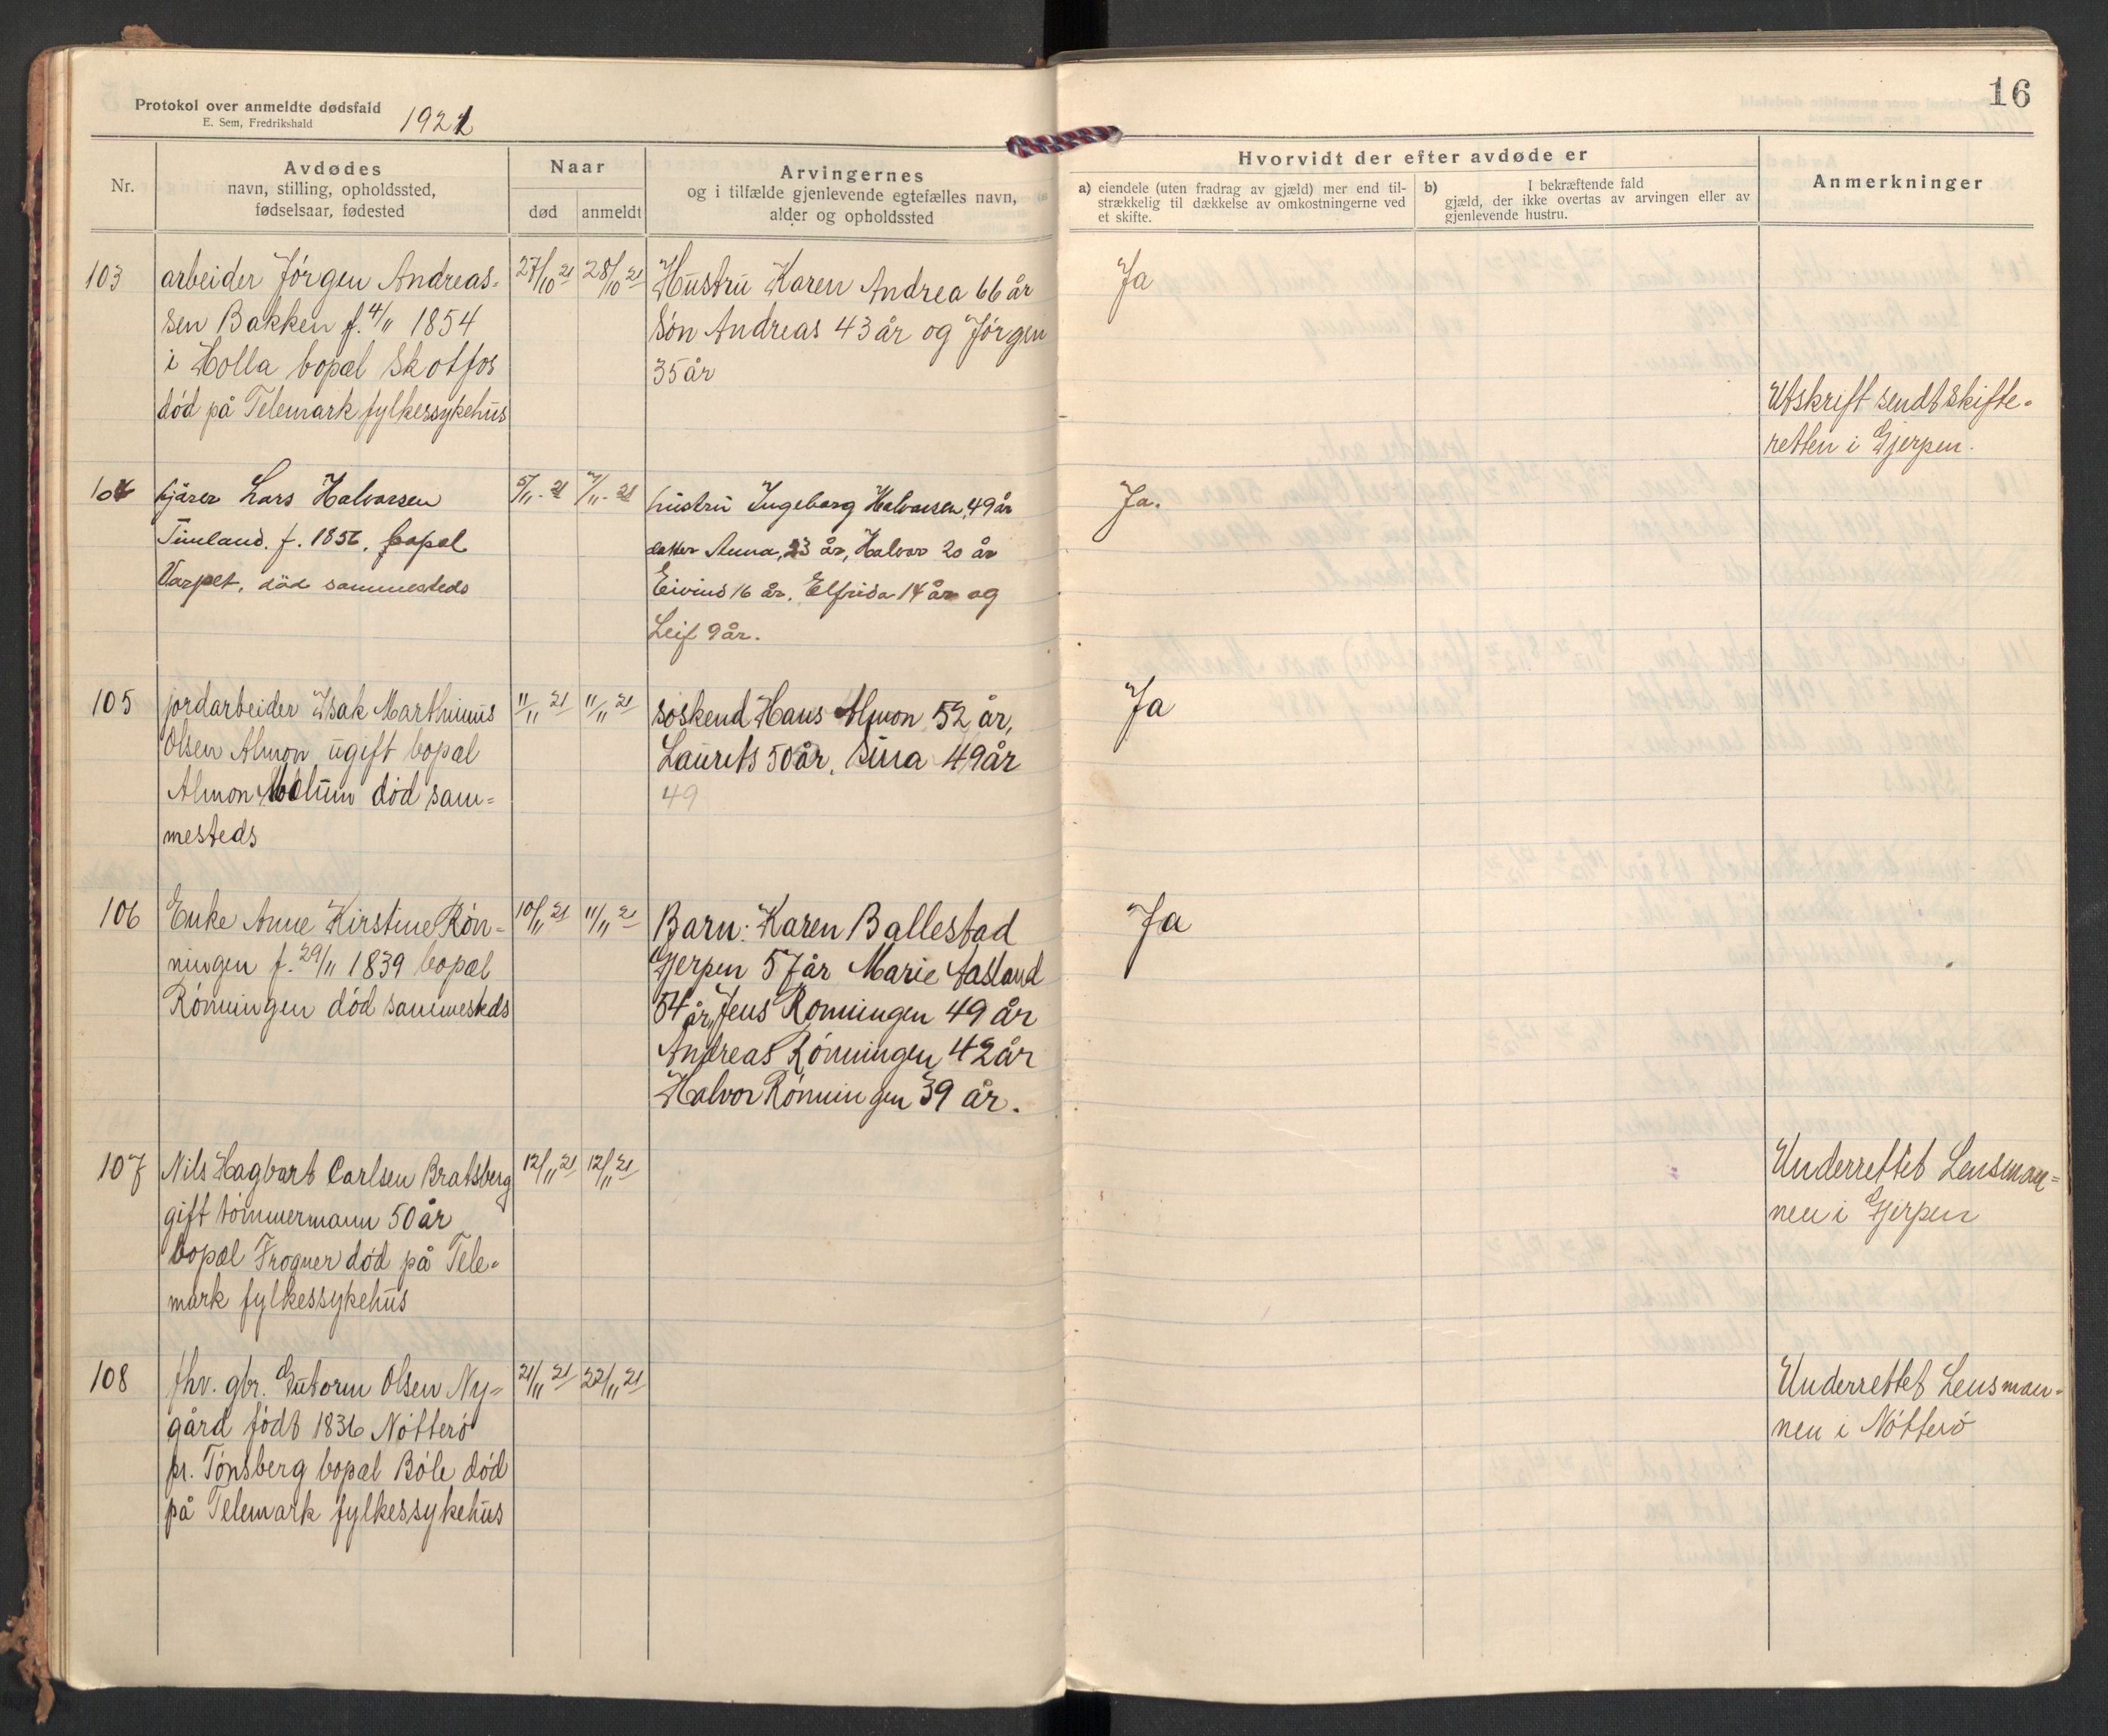 Protokol over anmeldte dødsfald
E. Sem, Fredrikshald
1921
16
Nr.
Avdødes
navn, stilling, opholdssted,
fødselsaar, fødested
Naar
død
anmeldt
Arvingernes
og i tilfælde gjenlevende egtefælles navn,
alder og opholdssted
Hvorvidt der efter avdøde er
a) eiendele (uten fradrag av gjæld) mer end til-
strækkelig til dækkelse av omkostningerne ved
et skifte.
b) I bekræftende fald
gjæld, der ikke overtas av arvingen eller av
gjenlevende hustru.
Anmerkninger
103
arbeider Jørgen Andreas-
sen Bakken f. 4/11 1854
i Holla bopæl Skotfos
død på Telemark fylkessykehus
27/10 21
28/10 21
Hustru Karen Andrea 66 år
Søn Andreas 43 år og Jørgen
35 år
Ja
Utskrift sendt Skifte-
retten i Gjerpen.
104
kjører Lars Halvorsen
f. 1856, bopæl
Varpet, död sammesteds
5/11-21
7/11-21
hustru Ingeborg Halvorsen, 49 år
datter Anna, 23 år, Halvor 20 år
Eivind 16 år, Elfrida 14 år og
Leif 9 år.
Ja.
105
jordarbeider Isak Marthinius
Olsen Almon ugift bopæl
Almon Solum død sam-
mesteds
11/11 21
11/11 21
søskend Hans Almon 52 år,
Laurits 50 år, Sina 49 år
49
Ja
106
Enke Anne Kirstine Røn-
ningen f. 29/11 1839 bopæl
Rönningen död sammesteds
10/11 21
11/11 21
Barn: Karen Ballestad
Gjerpen 57 år Marie Aasland
54 år, Jens Ronningen 49 år
Andreas Rönningen 42 år
Halvor Rönningen 39 år.
Ja
107
Nils Hagbart Carlsen Bratsberg
gift tømmermann 50 år
bopæl Frogner død på Tele-
mark fylkessykehus
12/11 21
12/11 21
Underrettet Lensman-
nen i Gjerpen
108
fhv. gbr. Gutorm Olsen Ny-
gård født 1836 Nötterö
pr. Tønsberg bopæl Bøle død
på Telemark fylkessykehus
21/11 21
22/11 21
Underrettet Lensman-
nen i Nötterö